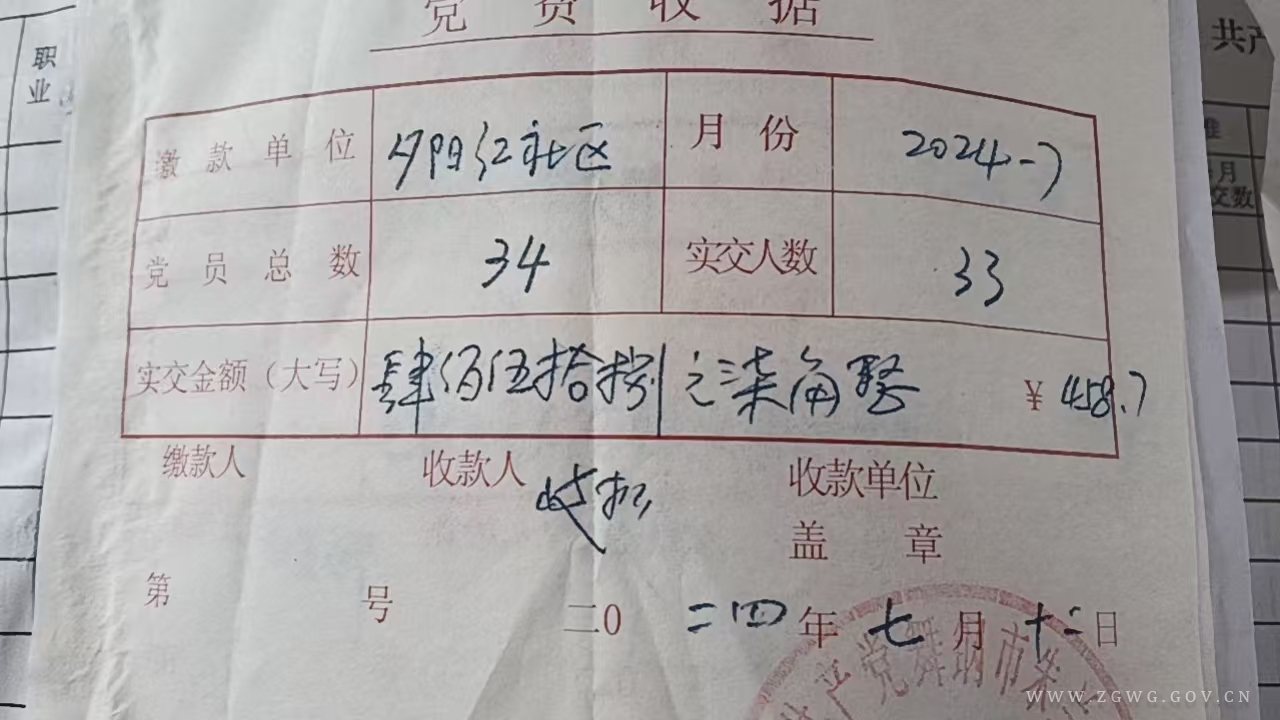 党费收据
职业
共产
缴款单位 夕阳红社区 月份 2024-7
月
交数
党员总数 34 实交人数 33
实交金额（大写） 肆佰伍拾捌元柒角整 ¥ 458.7
缴款人 收款人 收款单位
盖章
第 号 二0二四年七月十二日
产党舞钢市朱
WWW.ZGWG.GOV.CN